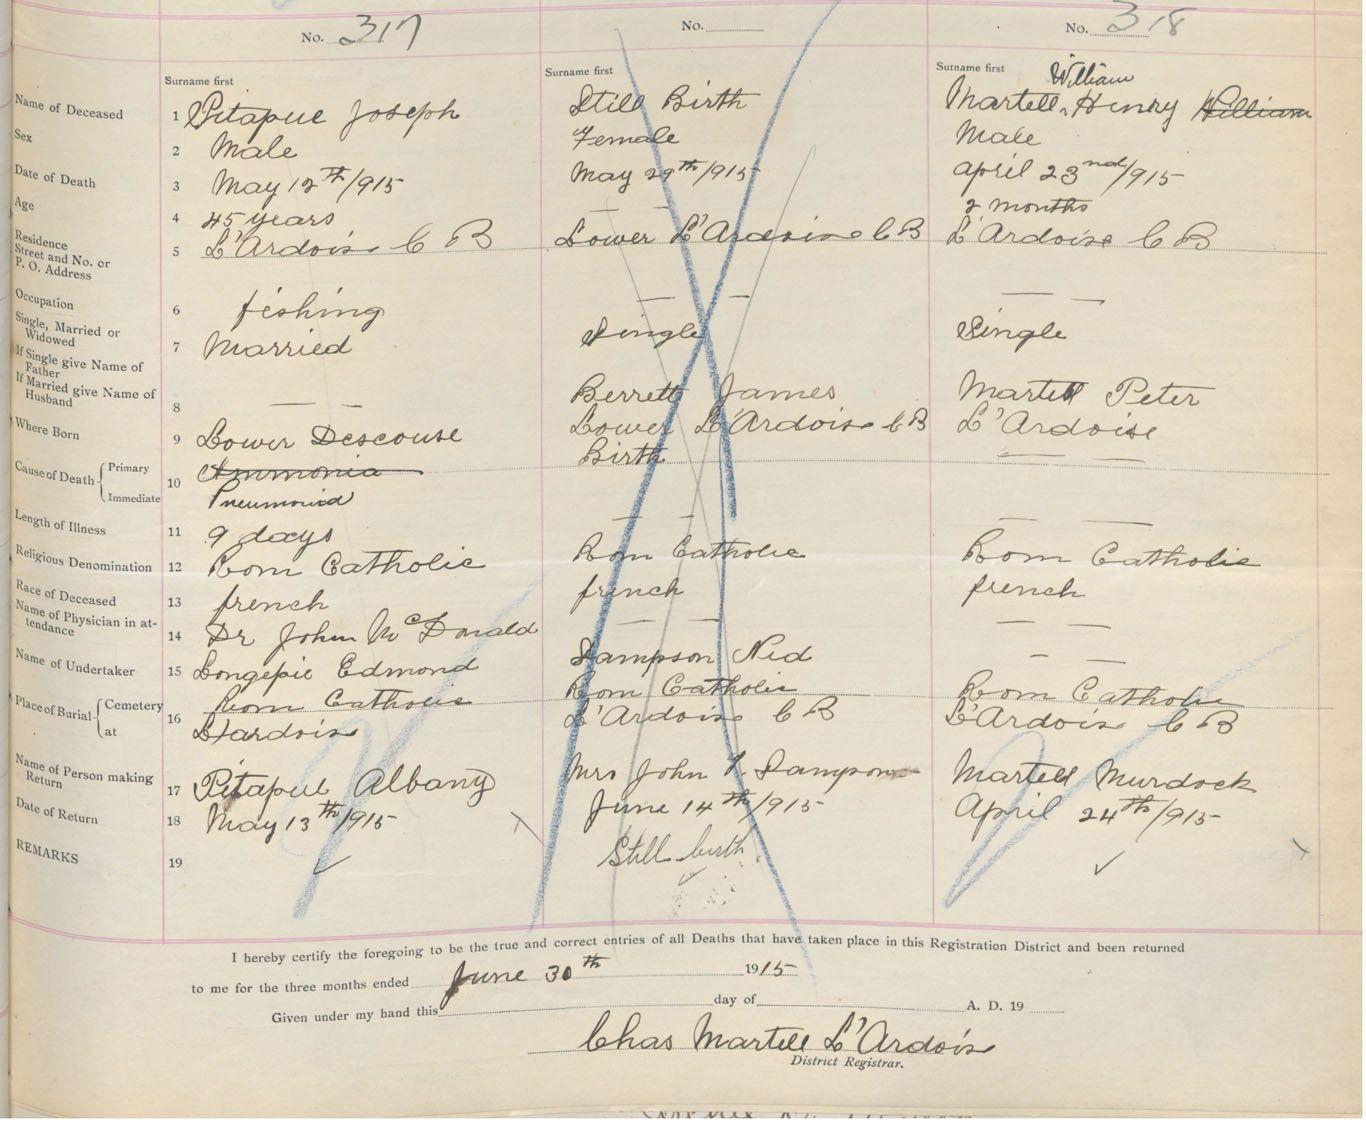 No. 317
No.
No. 318
Surname first
Surname first
Surname first
William
Name of Deceased 1 Pitapue Joseph
Still Birth
Martell, Henry William
Sex 2 Male
Female
Male
Date of Death 3 May 12th/915
May 29th/915
april 23nd/915
Age 4 45 years
— —
2 months
Residence
Street and No. or
P. O. Address
5 L'Ardoise C B
Lower L'Ardoise C B
L'Ardoise C B
Occupation 6 fishing
— —
— —
Single, Married or
Widowed
7 Married
Single
Single
If Single give Name of
Father
If Married give Name of
Husband
8 — —
Berrett James
Martell Peter
Where Born 9 Lower Descouse
Lower L'Ardoise C B
L'Ardoise
Cause of Death { Primary
Immediate
10 Ammonia
Pneumonia
Birth
— —
Length of Illness 11 9 days
— —
— —
Religious Denomination 12 Rom Catholic
Rom Catholic
Rom Catholic
Race of Deceased 13 french
french
french
Name of Physician in at-
tendance
14 Dr John McDonald
— —
— —
Name of Undertaker 15 Longepie Edmond
Sampson Ned
— —
Place of Burial { Cemetery
at
16 Rom Catholic
L'ardois
Rom Catholic
L'Ardoise C B
Rom Catholic
L'Ardois C B
Name of Person making
Return
17 Pitapue Albany
Mrs John Sampson
Martell Murdock
Date of Return 18 May 13th/915
June 14th/915
April 24th/915
REMARKS 19 ✓
Still birth
✓
✓
I hereby certify the foregoing to be the true and correct entries of all Deaths that have taken place in this Registration District and been returned
to me for the three months ended June 30th 1915
Given under my hand this day of A. D. 19
Chas Martell L'Ardois
District Registrar.